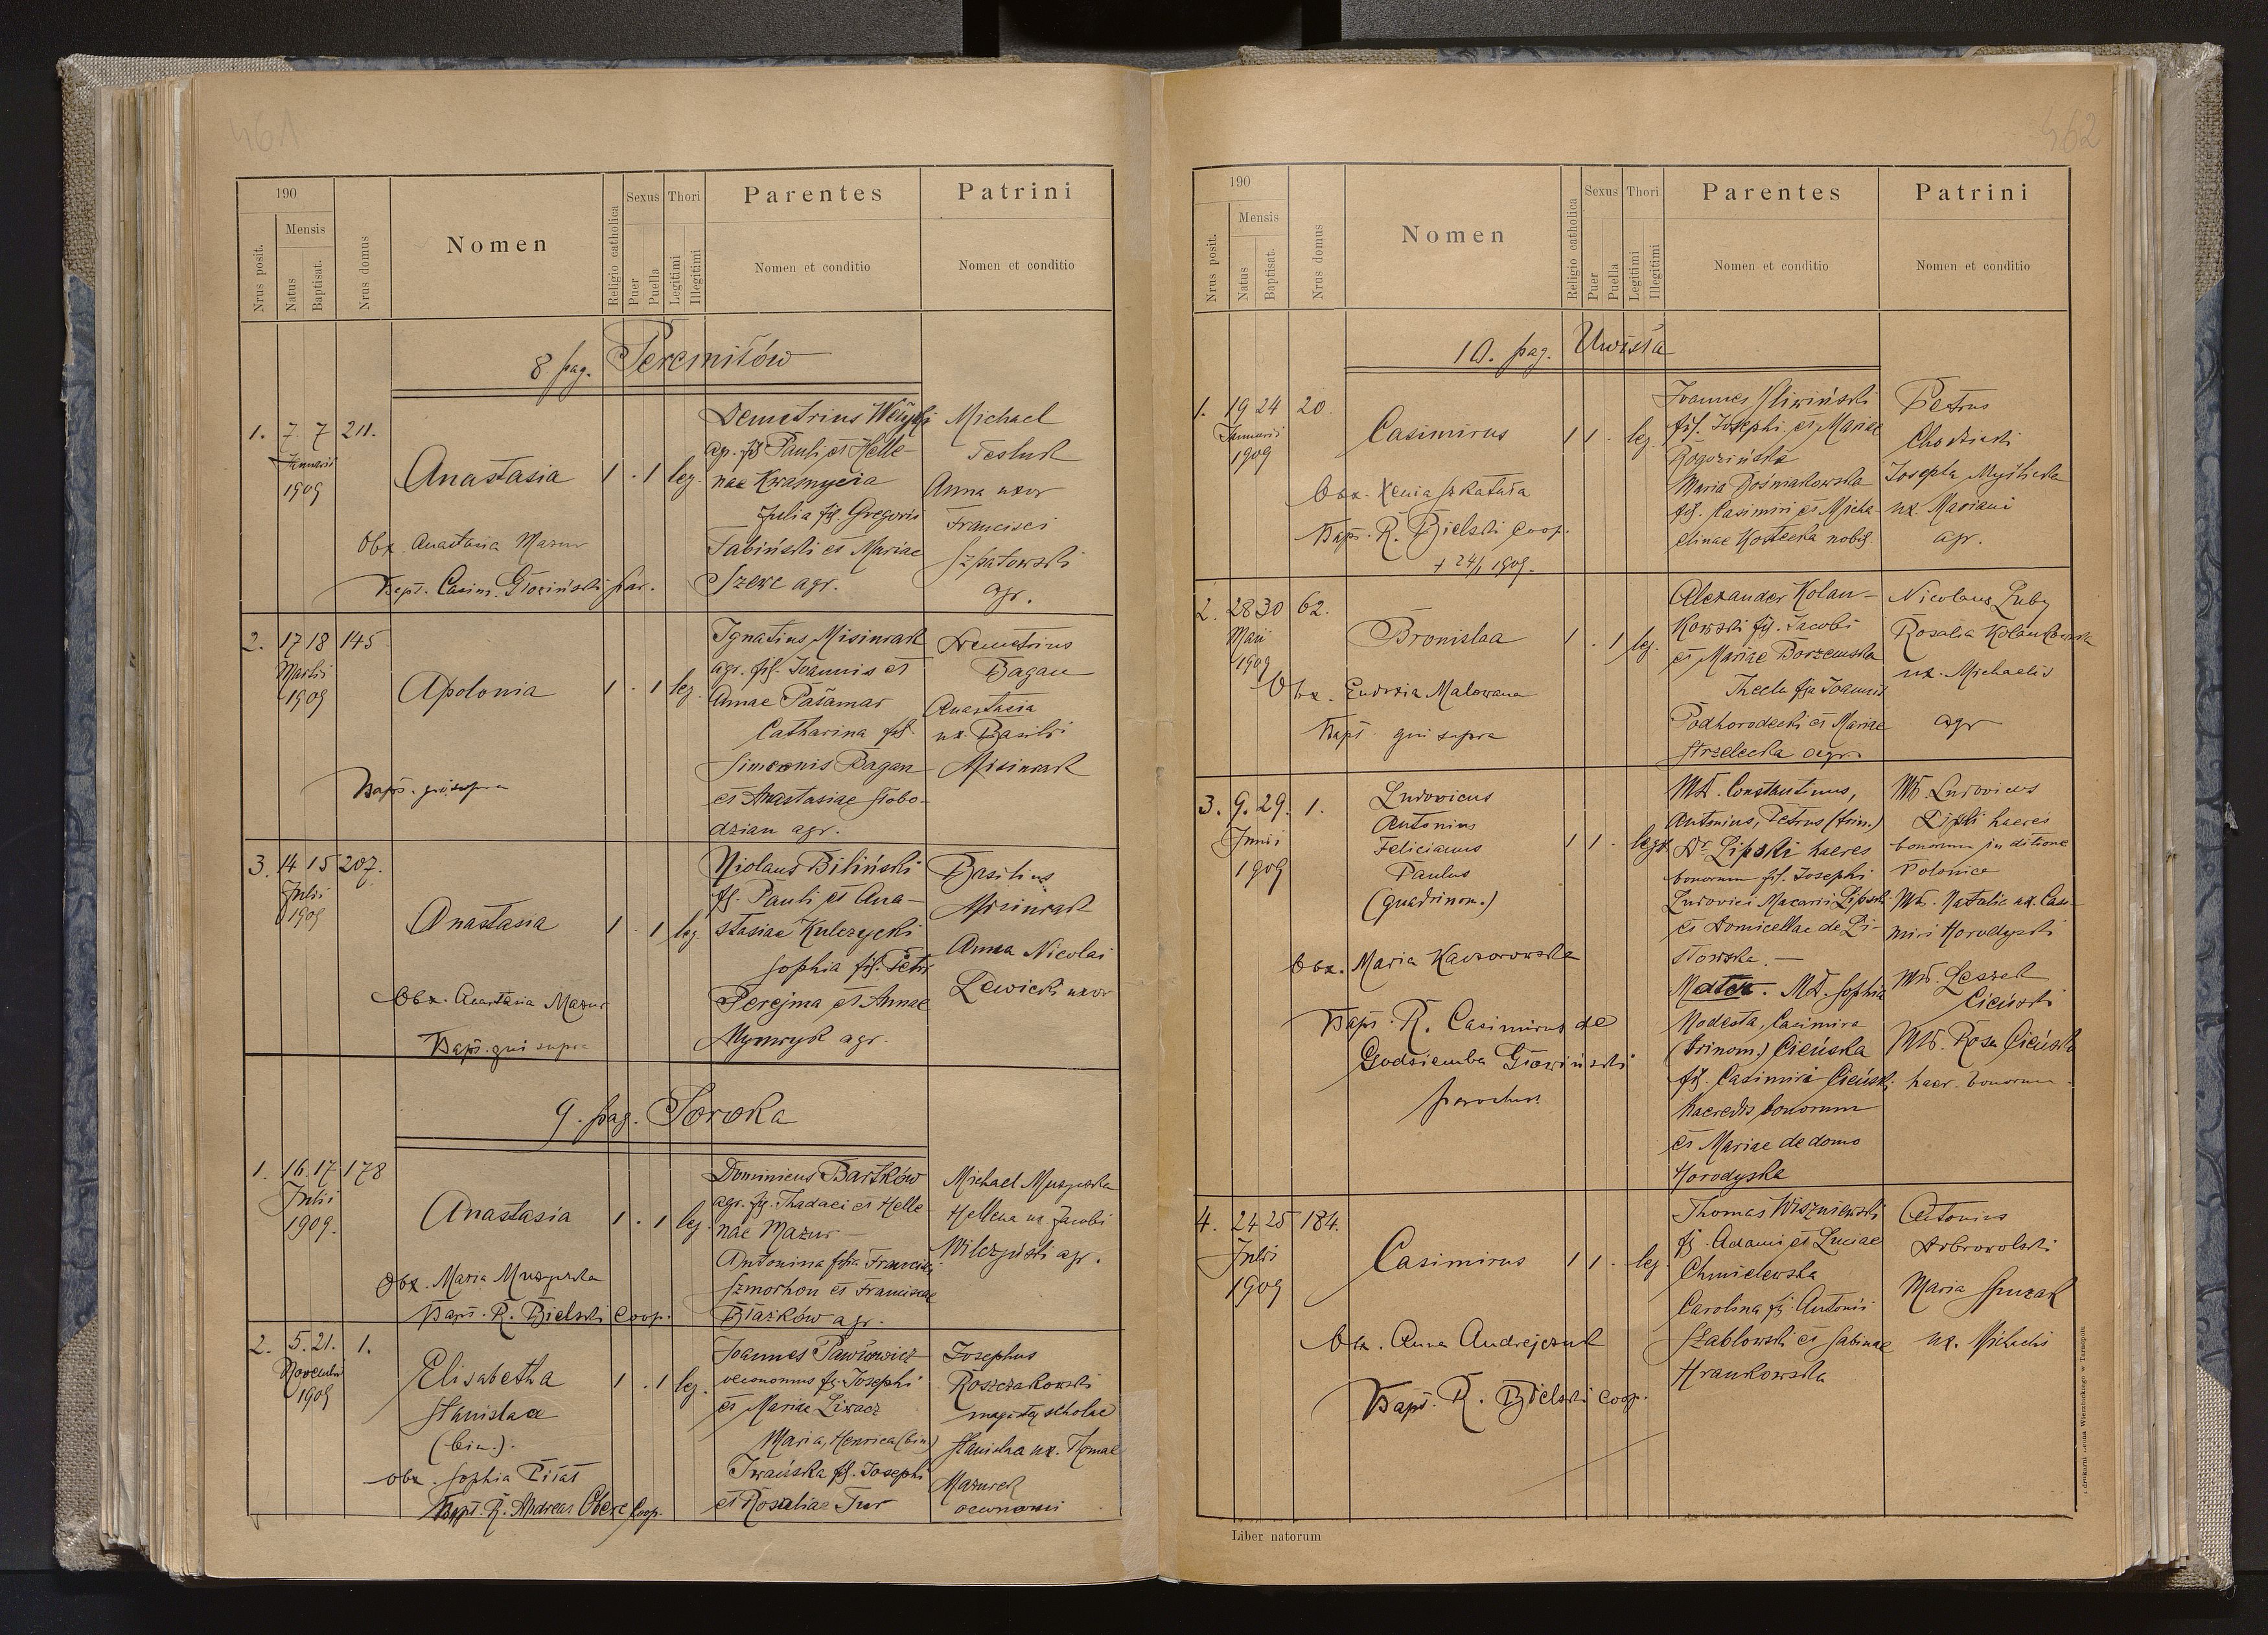 461
190
Mensis
Nrus posit.
Natus
Baptisat.
Nrus domus
Nomen
Religio catholica
Sexus
Puer
Puella
Thori
Legitimi
Illegitimi
Parentes
Nomen et conditio
Patrini
Nomen et conditio
8. pag. Peremiłów
1. 7 7 211.
Januarii
1909
Anastasia 1 . 1 leg.
Obx. Anastasia Mazur
Bapt. Casim. Głowiński par.
Demetrius
agr. fil. Pauli et Helle-
nae Kwasnycia
Julia fil. Gregorii
Fabiński et Mariae
Szewc agr.
Michael
Tesluk
Anna uxor
Francisci
Szpatowski
agr.
2. 17 18 145
Martii
1909
Apolonia 1 . 1 leg.
Bapt. qui supra
Ignatius Misiurak
agr. fil. Joannis et
Annae
Catharina fil.
Simeonis Bagan
et Anastasiae Słobo-
dzian agr.
Demetrius
Bagan
Anastasia
ux. Basilii
Misiurak
3. 14 15 207.
Julii
1909
Anastasia 1 . 1 leg.
Obx. Anastasia Mazur
Bapt. qui supra
Niolaus Biliński
fil. Pauli et Ana-
stasiae Kulczycki
Sophia fil. Petri
Perejma et Annae
agr.
Basilius
Misiurak
Anna Nicolai
Lewicki uxor
9. pag. Soroka
1. 16 17 178
Julii
1909.
Anastasia 1 . 1 leg.
Obx. Maria Muzyczka
Bapt. R. Bielski Coop.
Dominicus Bartków
agr. fil. Thadaei et Helle-
nae Mazur —
Antonina filia Francisci
Szmorhon et Franciscae
Błażków agr.
Michael Muzyczka
Hellena ux. Jacobi
Wilczyński agr.
2. 5. 21. 1.
Novembr
1909
Elisabetha 1 . 1 leg.
Stanislaa
(bin.).
Obx. Sophia Piłat
Bapt. R. Andreas Coop.
Joannes Pawłowicz
oeconomus fil. Josephi
et Mariae Liwacz
Maria, Henrica (bin)
Iwańska fil. Josephi
et Rosaliae Tur
Josephus
Roszczakowski
magister scholae
Stanislaa ux. Thomae
Mazurek
oeconomi
462
190
Mensis
Nrus posit.
Natus
Baptisat.
Nrus domus
Nomen
Religio catholica
Sexus
Puer
Puella
Thori
Legitimi
Illegitimi
Parentes
Nomen et conditio
Patrini
Nomen et conditio
10. pag. Uwisła
1. 19 24 20.
Januarii
1909
Casimirus 1 1 . leg.
Obx. Xenia Szkatuła
Bapt. R. Bielski Coop.
+ 24/1 1909.
Joannes Śliwiński
fil. Josephi et Mariae
Rogozińska
Maria Dośniakowska
fil. Casimiri et Micha-
elinae Kostecka nobil.
Petrus
Chodzicki
Josepha Myślicka
ux. Mariani
agr.
2. 28 30 62.
Maii
1909
Bronislaa 1 . 1 leg.
Obx. Eudoxia Malowana
Bapt. qui supra
Alexander Kolan-
kowski fil. Jacobi
et Mariae Borzemska
Thecla filia Joannis
Podhorodecki et Mariae
Strzelecka agr.
Nicolaus Luby
Rosalia Kolankowska
ux. Michaelis
agr
3. 9. 29. 1.
Junii
1909
Ludovicus
Antonius
Felicianus
Paulus
(quadrinom.)
1 1 . leg.
Obx. Maria Kaczorowska
Bapt. R. Casimirus de
Godziemba Głowiński
parochus
Md. Constantinus,
Antonius, Petrus (trin.)
Dr. Lipski haeres
bonorum fil. Josephi
Ludovici Macarii Lipski
et Domicellae de Li-
stowska. —
Mater. Md. Sophia
Modesta, Casimira
(trinom.) Cieńska
fil. Casimiri Cieński
haeredis bonorum
et Mariae de domo
Horodyska
Md. Ludovicus
Lipski haeres
bonorum in ditione
Polonica
Md. Natalia ux. Casi-
miri Horodyski
Md. Leszek
Cieński
Md. Rosa Cieńska
haer. bonorum
4. 24 25 184.
Julii
1909
Casimirus 1 1 . leg.
Obx. Anna Andrejczuk
Bapt. R. Bielski Coop.
Thomas Wiszniewski
fil. Adami et Luciae
Chmielewska
Carolina fil. Antonii
Szablowski et Sabinae
Hrankowska
Antonius
Dobrowolski
Maria Spuzak
ux. Michaelis
Liber natorum
z drukarni Leona Wierzbickiego w Tarnopolu